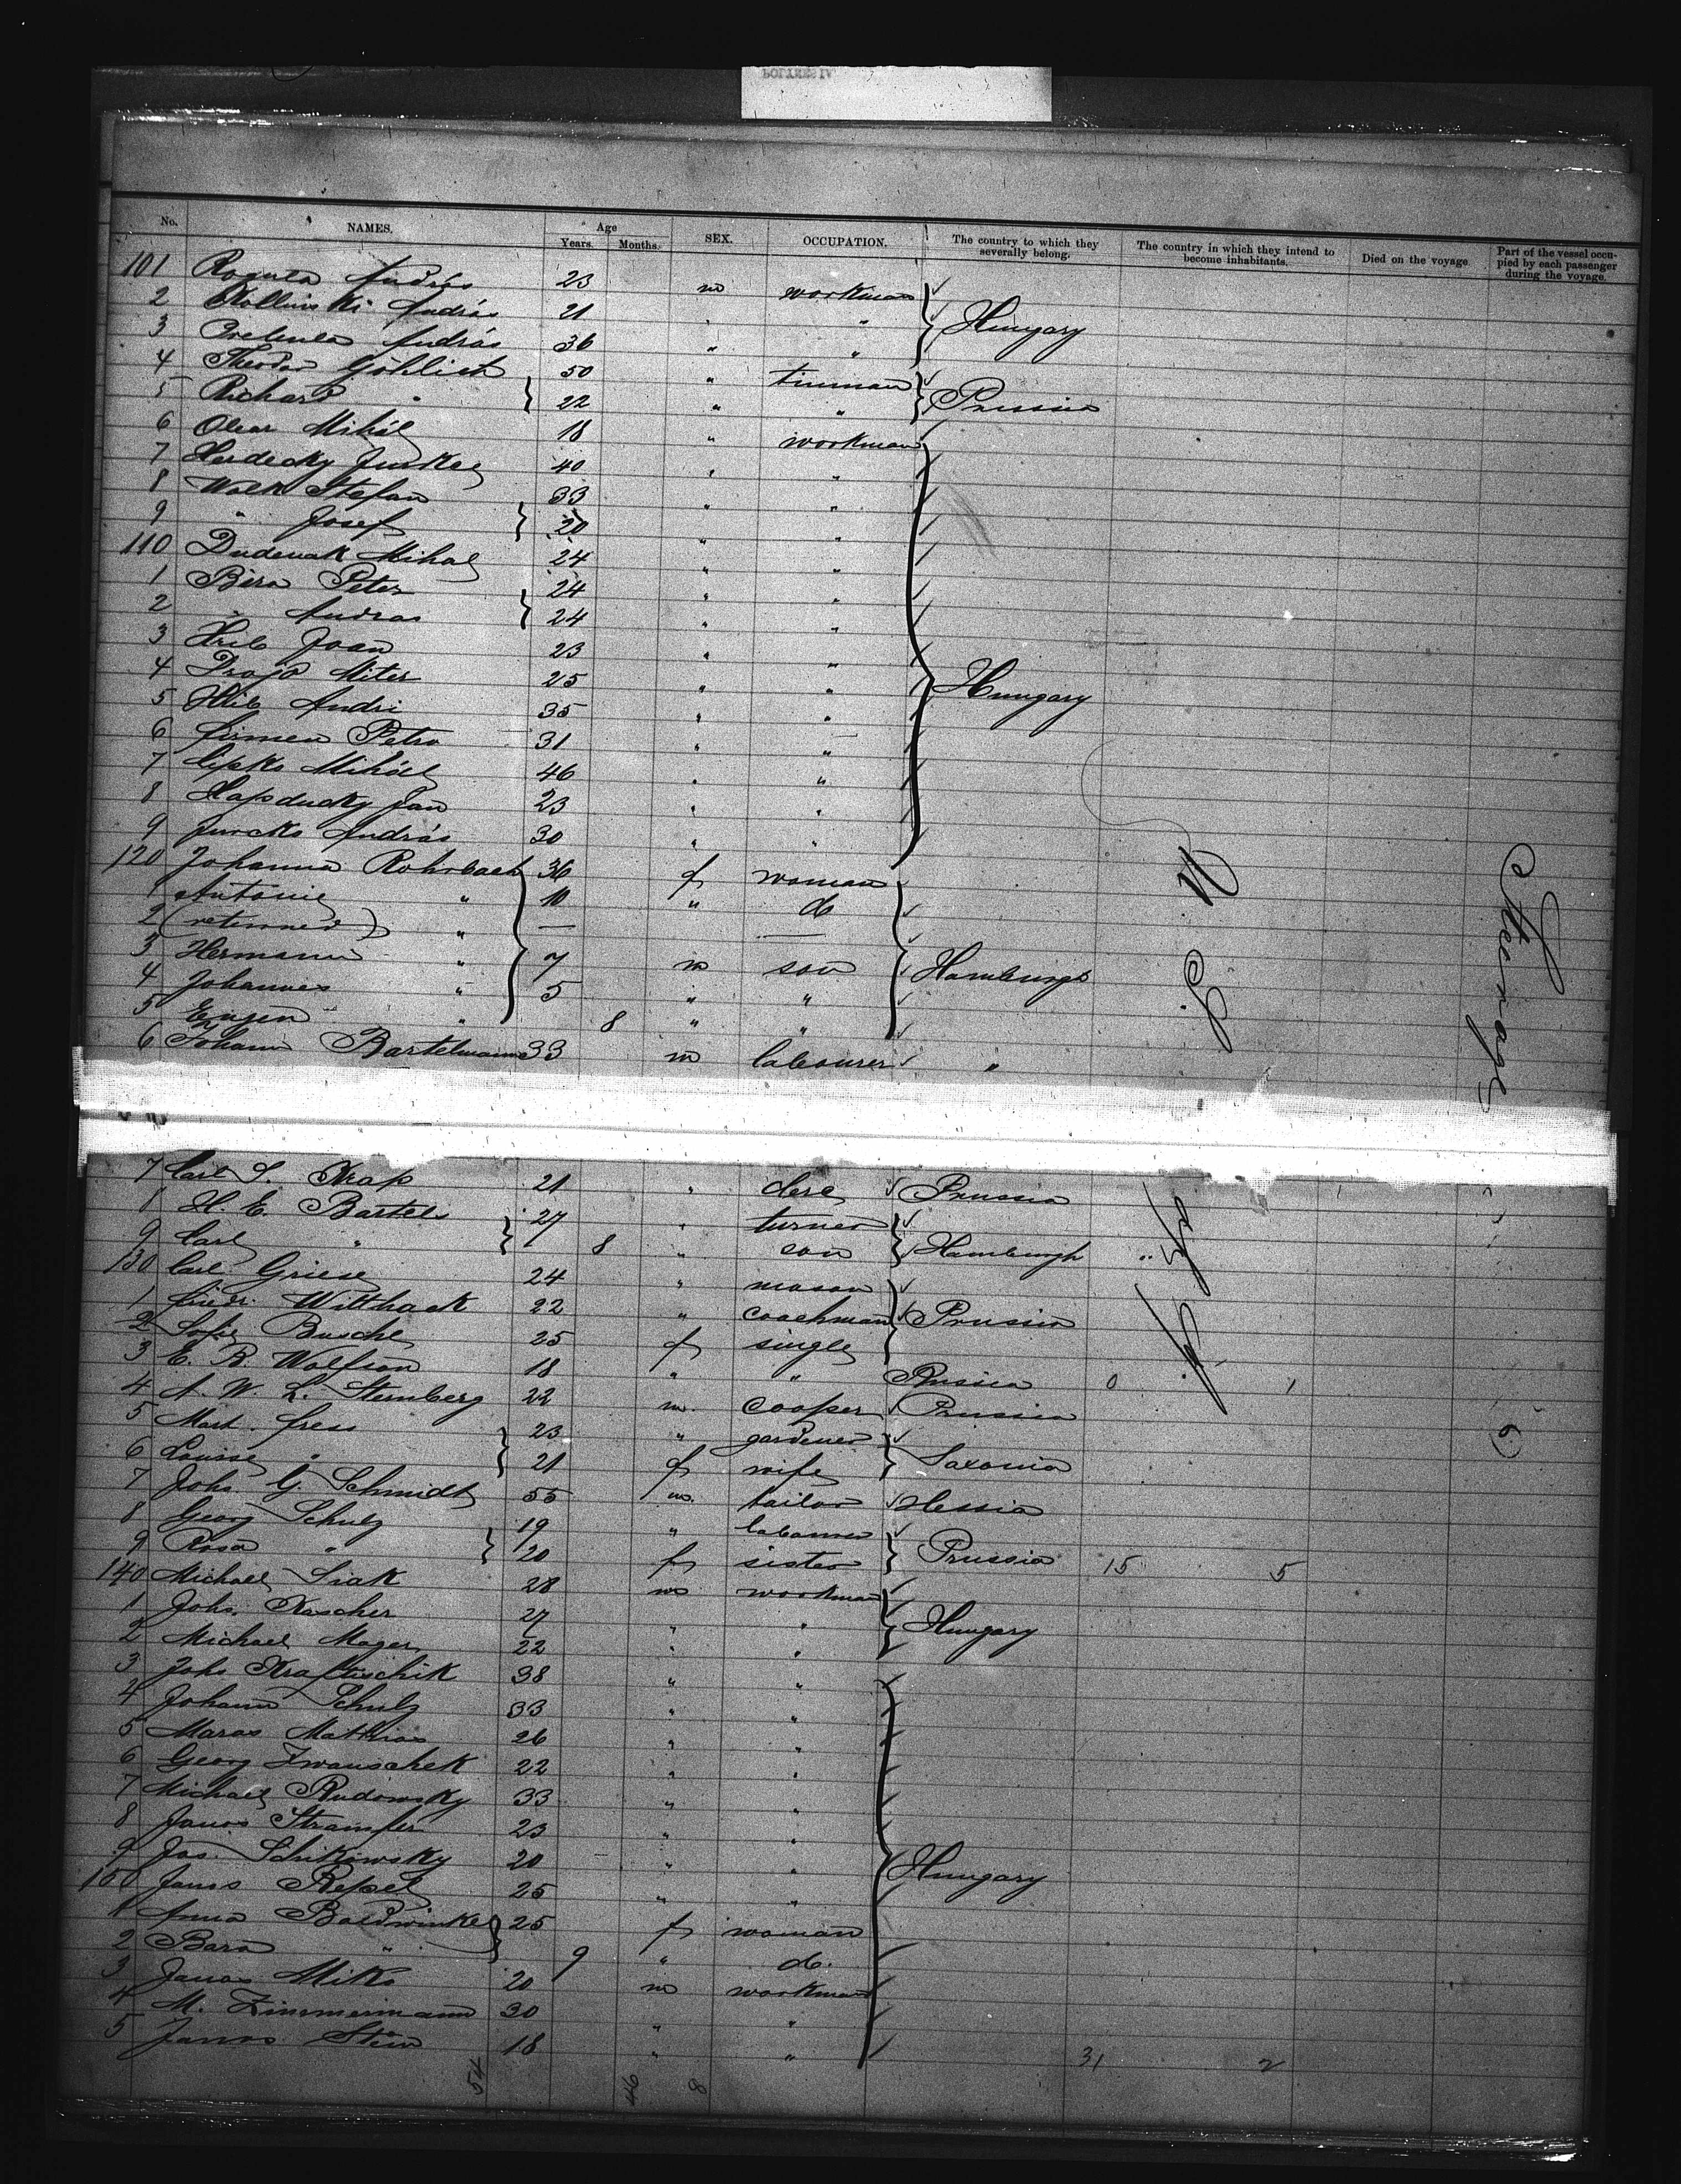 No. NAMES. Age Years. Months. SEX. OCCUPATION. The country to which they severally belong. The country in which they intend to become inhabitants. Died on the voyage. Part of the vessel occupied by each passenger during the voyage.
101 András 23 m workman
2 András 21 " " Hungary
3 András 36 " "
4 Theodor Göhlich 50 " tinman
5 Richard " 22 " " Prussia
6 Olear Mihál 18 " workman
7 40 " "
8 Walk Stefan 33 " "
9 " Josef 20 " "
110 Dudenak Mihal 24 " "
1 Bira Peter 24 " "
2 " Andras 24 " "
3 Hrib Joan 23 " "
4 Miter 25 " " Hungary
5 Hrib Andri 35 " "
6 Petro 31 " "
7 Mihál 46 " "
8 Jan 23 " "
9 András 30 " "
120 Johanna Rohrbach 36 f woman
1 Antonie " 10 " do
2 (returned) " — —
3 Hermann " 7 m son Hamburgh
4 Johannes " 5 " "
5 Eugen " 8 " "
6 Johann Bartelmann 33 m labourer "
U. S. Steerage
7 Carl S. 21 " Prussia
8 H. E. Bartels 27 " turner
9 Carl " 8 " son Hamburgh "
130 Carl Griese 24 " mason
1 Friedr. Witthack 22 " coachman Prussia
2 Sofie Busche 25 f single
3 E. R. Wolfson 18 " " Russia 0 1
4 A. W. L. Sternberg 22 m. cooper Prussia
5 Mart. 23 " gardener
6 Louise " 21 f wife Saxonia
7 Johs G. Schmidt 55 m. tailor Hessia
8 Georg Schulz 19 " labourer
9 Rosa " 20 f sister Prussia 15 5
140 Michael Siak 28 m workman
1 Johs. Kascher 27 " " Hungary
2 Michael Mager 22 " "
3 Johs 38 " "
4 Johann Schulz 33 " "
5 Maras Matthias 26 " "
6 Georg Iwanschek 22 " "
7 Michael Rudowsky 33 " "
8 Janos 23 " "
9 Jos. Schikowsky 20 " " Hungary
150 Janos 25 " "
1 Anna Baldwinkel 25 f woman
2 Bara " 9 " do.
3 Janos Miko 20 m workman
4 M. Zimmermann 30 " "
5 Janos 18 " " 31 2
54 46 8